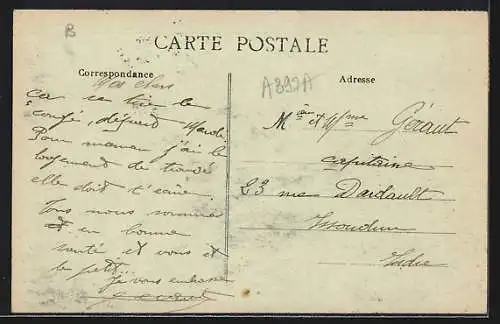 B
CARTE POSTALE
Correspondance
Adresse
A392A
Mes chers
ça va tire le
congé, départ Mardi
Pour maman j'ai le
logement de trouvé
elle doit t'écrire.
Tous nous sommes
en bonne
santé et vous et
le petit...
Je vous embrasse
Mr et Mme Géraut
capitaine
23 rue Dardault
Issoudun
Indre